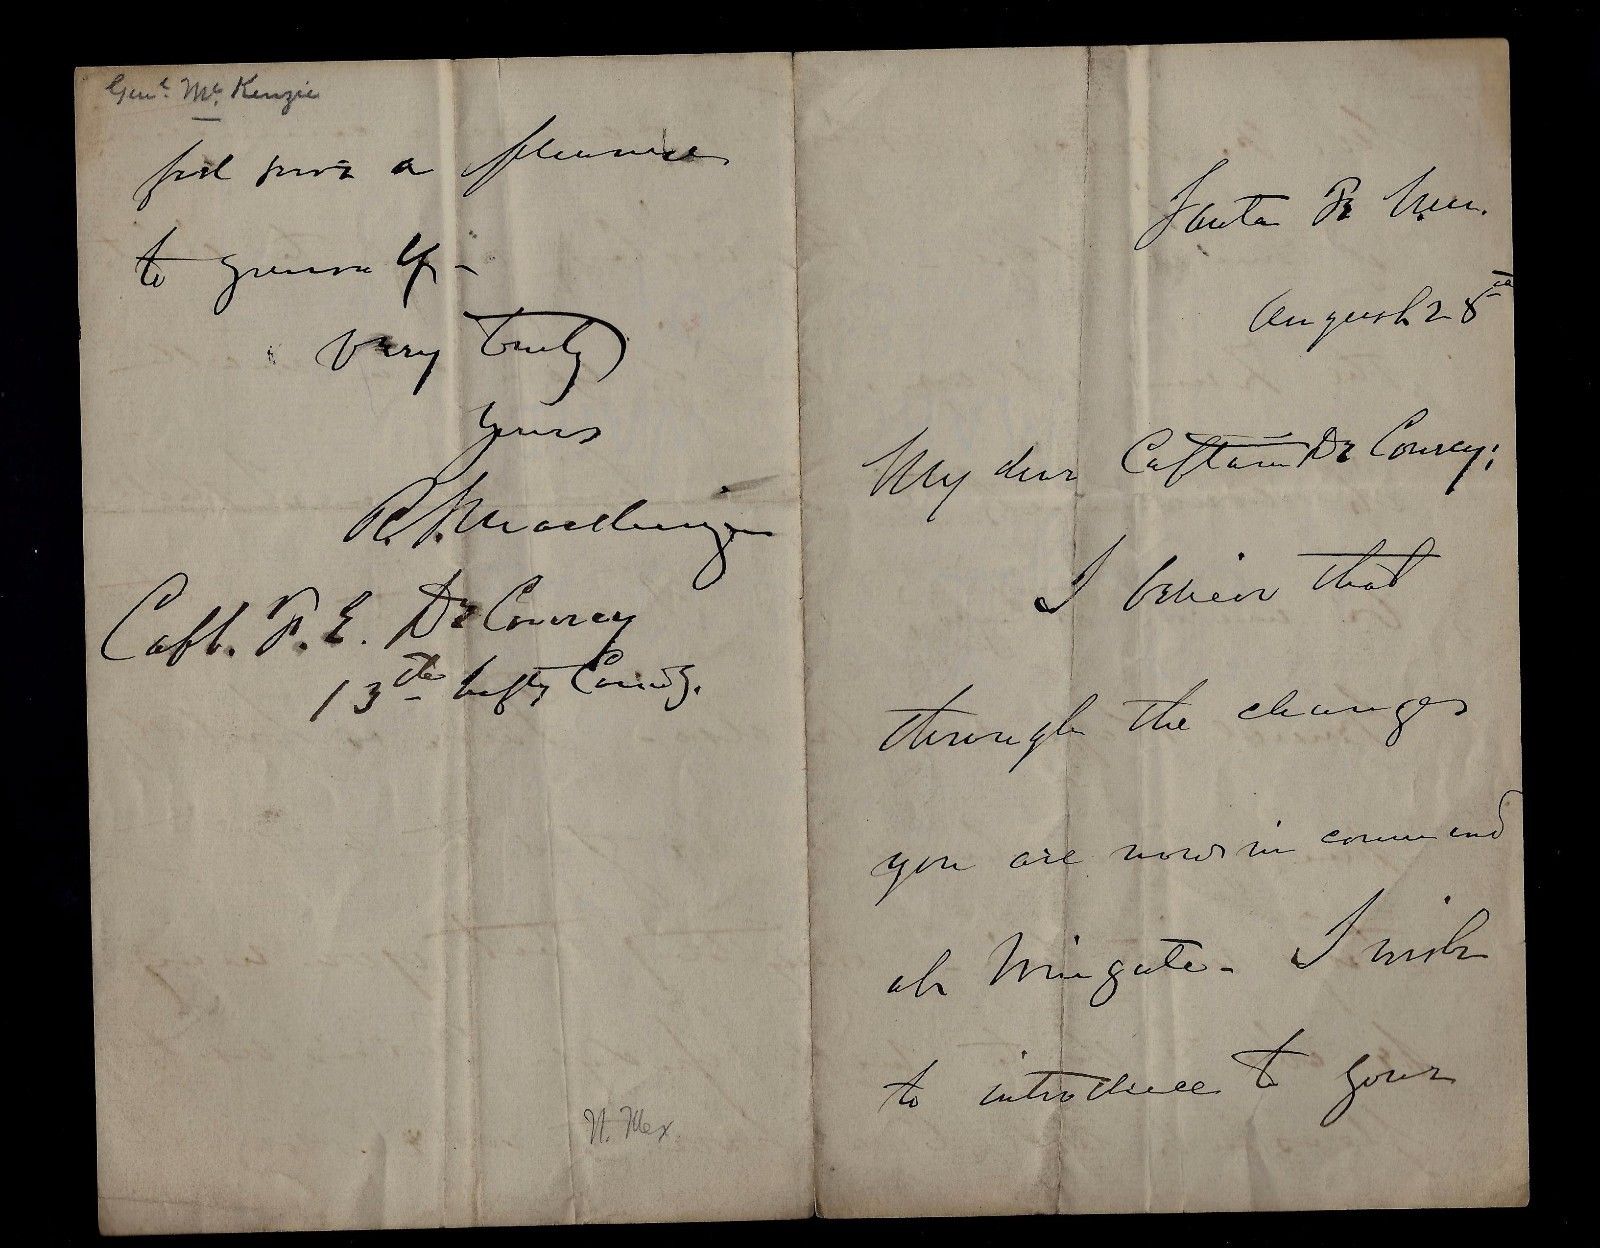 Santa Fe
August 28th
My dear Captain De Courcy;
I believe that
through the changes
you are now in command
at Wingate - I wish
to introduce to your
Genl. McKenzie
a pleasure
to
Very truly
Yours
R. S. Mackenzie
Capt. F. E. De Courcy
13th Infty Comdg.
N. Mex